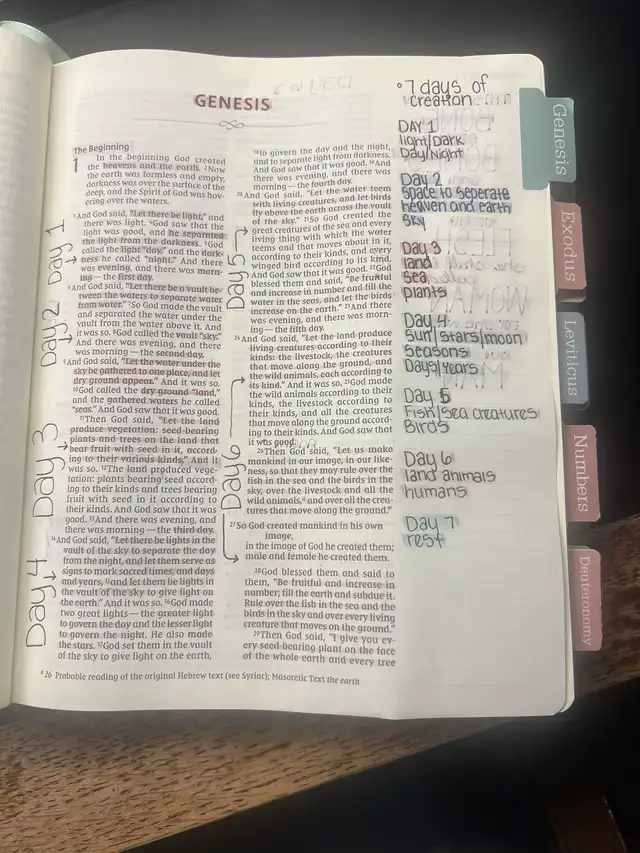 GENESIS
The Beginning
1 In the beginning God created
the heavens and the earth. 2Now
the earth was formless and empty,
darkness was over the surface of the
deep, and the Spirit of God was hov-
ering over the waters.
3And God said, "Let there be light," and
there was light. 4God saw that the
light was good, and he separated
the light from the darkness. 5God
called the light "day," and the dark-
ness he called "night." And there
was evening, and there was morn-
ing — the first day.
6And God said, "Let there be a vault be-
tween the waters to separate water
from water." 7So God made the vault
and separated the water under the
vault from the water above it. And
it was so. 8God called the vault "sky."
And there was evening, and there
was morning — the second day.
9And God said, "Let the water under the
sky be gathered to one place, and let
dry ground appear." And it was so.
10God called the dry ground "land,"
and the gathered waters he called
"seas." And God saw that it was good.
11Then God said, "Let the land
produce vegetation: seed-bearing
plants and trees on the land that
bear fruit with seed in it, accord-
ing to their various kinds." And it
was so. 12The land produced vege-
tation: plants bearing seed accord-
ing to their kinds and trees bearing
fruit with seed in it according to
their kinds. And God saw that it was
good. 13And there was evening, and
there was morning — the third day.
14And God said, "Let there be lights in the
vault of the sky to separate the day
from the night, and let them serve as
signs to mark sacred times, and days
and years, 15and let them be lights in
the vault of the sky to give light on
the earth." And it was so. 16God made
two great lights — the greater light
to govern the day and the lesser light
to govern the night. He also made
the stars. 17God set them in the vault
of the sky to give light on the earth,
Day 1
Day 2
Day 3
Day 4
18to govern the day and the night,
and to separate light from darkness.
And God saw that it was good. 19And
there was evening, and there was
morning — the fourth day.
20And God said, "Let the water teem
with living creatures, and let birds
fly above the earth across the vault
of the sky." 21So God created the
great creatures of the sea and every
living thing with which the water
teems and that moves about in it,
according to their kinds, and every
winged bird according to its kind.
And God saw that it was good. 22God
blessed them and said, "Be fruitful
and increase in number and fill the
water in the seas, and let the birds
increase on the earth." 23And there
was evening, and there was morn-
ing — the fifth day.
24And God said, "Let the land produce
living creatures according to their
kinds: the livestock, the creatures
that move along the ground, and
the wild animals, each according to
its kind." And it was so. 25God made
the wild animals according to their
kinds, the livestock according to
their kinds, and all the creatures
that move along the ground accord-
ing to their kinds. And God saw that
it was good.
26Then God said, "Let us make
mankind in our image, in our like-
ness, so that they may rule over the
fish in the sea and the birds in the
sky, over the livestock and all the
wild animals,a and over all the crea-
tures that move along the ground."
27So God created mankind in his own
image,
in the image of God he created them;
male and female he created them.
28God blessed them and said to
them, "Be fruitful and increase in
number; fill the earth and subdue it.
Rule over the fish in the sea and the
birds in the sky and over every living
creature that moves on the ground."
29Then God said, "I give you ev-
ery seed-bearing plant on the face
of the whole earth and every tree
Day 5
Day 6
a 26 Probable reading of the original Hebrew text (see Syriac); Masoretic Text the earth
7 days of
creation
DAY 1
light/Dark
Day/Night
Day 2
Space to seperate
heaven and earth
sky
Day 3
land
sea
plants
Day 4
Sun/stars/moon
Seasons
Days/years
Day 5
Fish/Sea creatures
Birds
Day 6
land animals
humans
Day 7
rest
Genesis
Exodus
Leviticus
Numbers
Deuteronomy